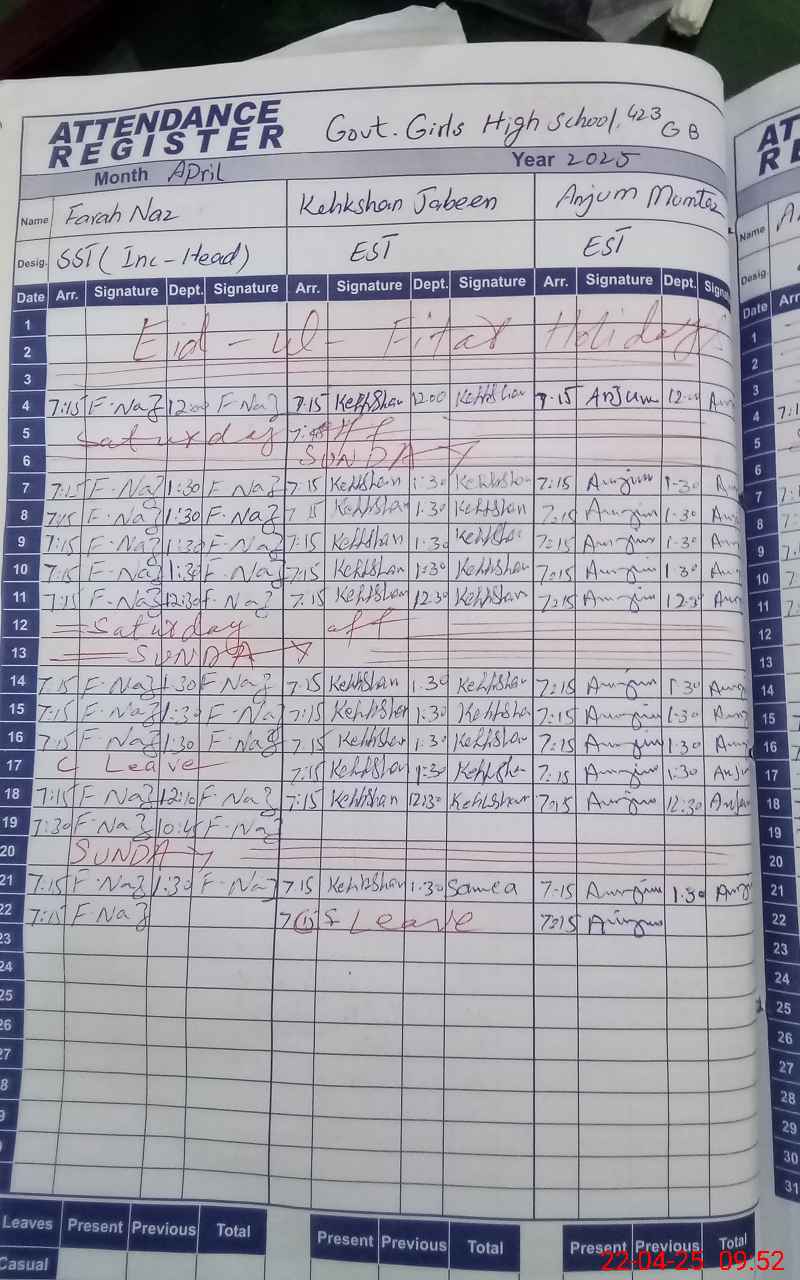 ATTENDANCE REGISTER Govt. Girls High School, 423 GB
Month April Year 2025
Name Farah Naz Kehkshan Jabeen Anjum Mumtaz
Desig. SST (Inc-Head) EST EST
Date Arr. Signature Dept. Signature Arr. Signature Dept. Signature Arr. Signature Dept.
1
2 Eid-ul-Fitar Holiday
3
4 7:15 F.Naz 12:00 F Naz 7.15 Kehkshan 12.00 Kehkshan 7.15 Anjum 12.00
5 Saturday off
6 SUNDAY
7 7:15 F.Naz 1:30 F Naz 7:15 Kehkshan 1:30 Kehkshan 7:15 Anjum 1-30
8 7:15 F.Naz 1:30 F.Naz 7 15 Kehkshan 1.30 Kehkshan 7:15 Anjum 1-30
9 7:15 F.Naz 1:30 F.Naz 7:15 Kehkshan 1.30 Kehkshan 7:15 Anjum 1-30
10 7:15 F.Naz 1:30 F.Naz 7:15 Kehkshan 1:30 Kehkshan 7:15 Anjum 1.30
11 7:15 F.Naz 12:30 F.Naz 7.15 Kehkshan 12.30 Kehkshan 7:15 Anjum 12.30
12 Saturday off
13 SUNDAY
14 7:15 F.Naz 1:30 F.Naz 7.15 Kehkshan 1.30 Kehkshan 7:15 Anjum 1.30
15 7:15 F.Naz 1:30 F.Naz 7:15 Kehkshan 1.30 Kehkshan 7:15 Anjum 1.30
16 7:15 F.Naz 1:30 F.Naz 7.15 Kehkshan 1.30 Kehkshan 7:15 Anjum 1:30
17 C Leave 7:15 Kehkshan 1:30 Kehkshan 7:15 Anjum 1:30
18 7:15 F.Naz 12:10 F.Naz 7:15 Kehkshan 12:30 Kehkshan 7:15 Anjum 12:30
19 7:30 F.Naz F.Naz
20 SUNDAY
21 7:15 F.Naz 1:30 F.Naz 7.15 Kehkshan 1.30 Samea 7.15 Anjum 1.30
22 7:15 F.Naz Leave 7:15 Anjum
23
24
25
26
27
8
9
Leaves Present Previous Total Present Previous Total Present Previous Total
Casual
Name
Desig.
Date Arr
1
2
3
4
5
6
7
8
9
10
11
12
13
14
15
16
17
18
19
20
21
22
23
24
25
26
27
28
29
30
31
22-04-25 09:52